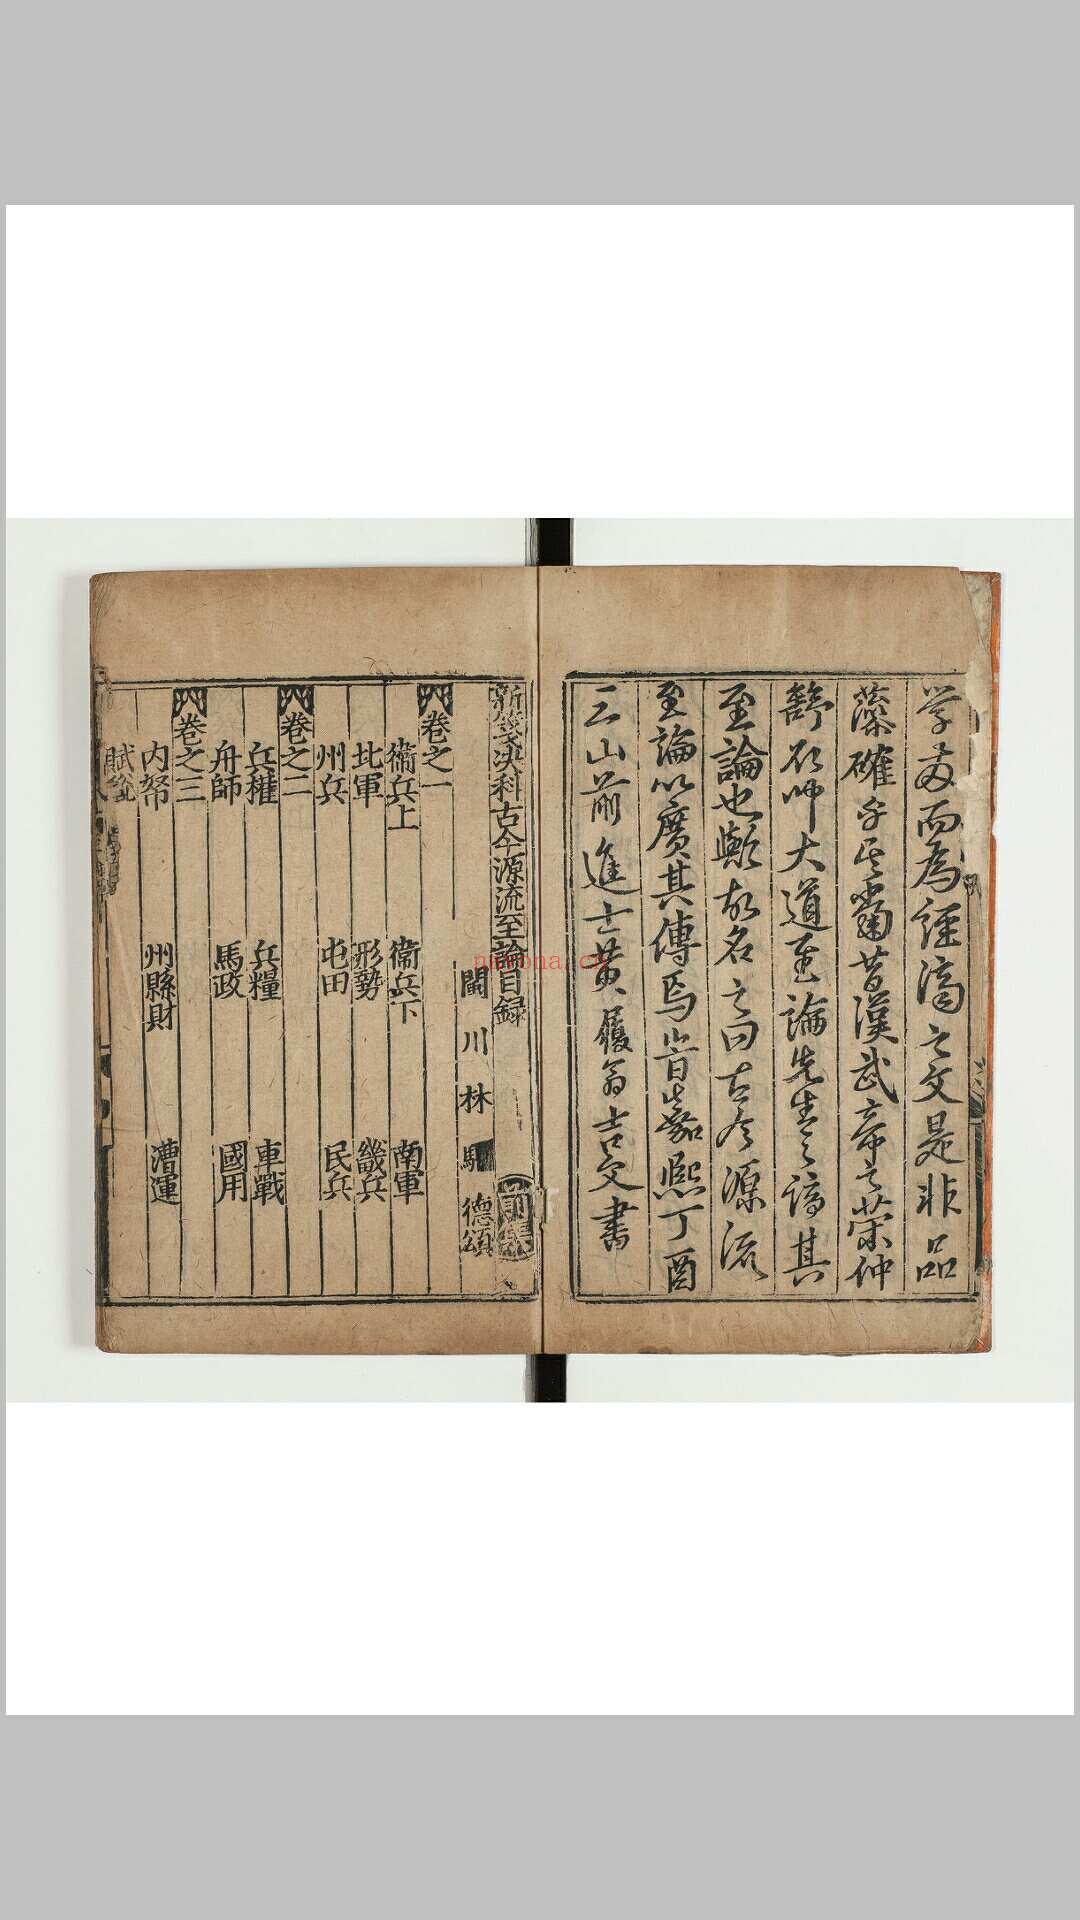 學古而為經濟之文是非品
藻確乎其當昔漢武帝之策仲
舒欣叩大道至論先生之論其
至論也歟故名之曰古今源流
至論以廣其傳焉旹嘉熙丁酉
三山前進士黃履翁吉父書
新箋決科古今源流至論目録
前集
閩川林駉德頌
卷之一
衞兵上 衞兵下 南軍
北軍 形勢 畿兵
州兵 屯田 民兵
卷之二
兵權 兵糧 車戰
舟師 馬政 國用
卷之三
內帑 州縣財 漕運
賦稅
navona.cn